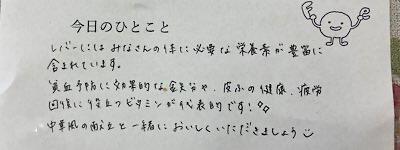 今日のひとこと
レバーにはみなさんの体に必要な栄養素が豊富に
含まれています。
貧血予防に効果的な鉄分や、皮ふの健康、疲労
回復に役立つビタミンが代表的です！
中華風の献立と一緒においしくいただきましょう